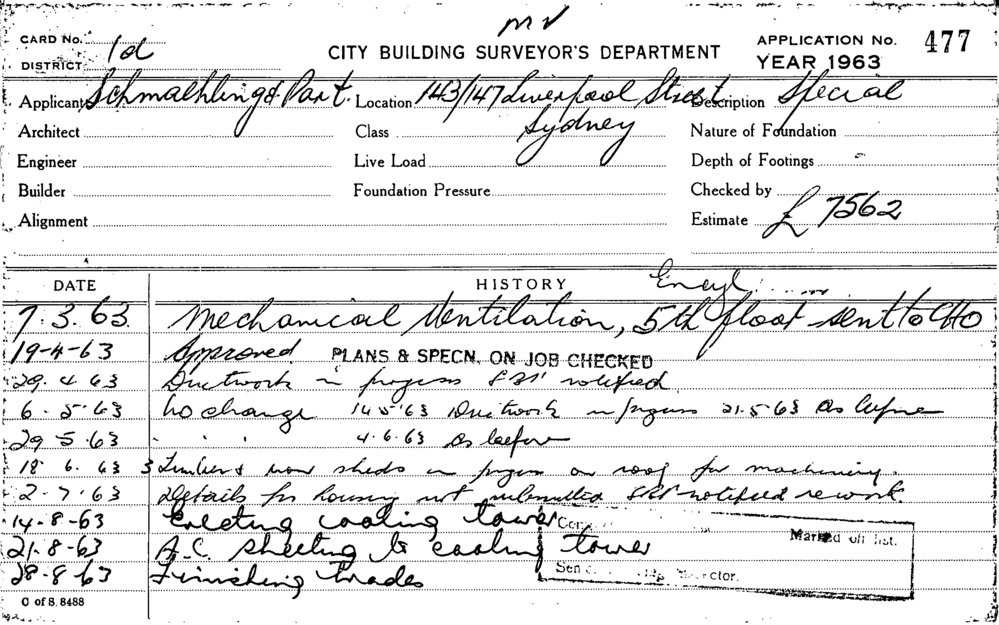 CARD No. 1d
DISTRICT
CITY BUILDING SURVEYOR'S DEPARTMENT
APPLICATION No. 477
YEAR 1963
Applicant Schmaehling & Part. Location 143/147 Liverpool Street Description Special
Architect Class Sydney Nature of Foundation
Engineer Live Load Depth of Footings
Builder Foundation Pressure Checked by
Alignment Estimate £ 7562
DATE HISTORY
7.3.63. Mechanical Ventilation, 5th floor sent to CHO
19-4-63 Approved PLANS & SPECN. ON JOB CHECKED
29.4.63 Ductwork in progress notified
6.5.63 No change 14.5.63 Ductwork in progress 21.5.63 As before
29.5.63 . . . 4.6.63 As before
18.6.63 3 Timber & iron sheds in progress on roof for machinery.
2.7.63 Details for housing not submitted notified re work.
14-8-63 Erecting cooling tower
21-8-63 A.C. sheeting to cooling tower
28-8-63 Finishing trades
Marked off list.
C of S. 8488